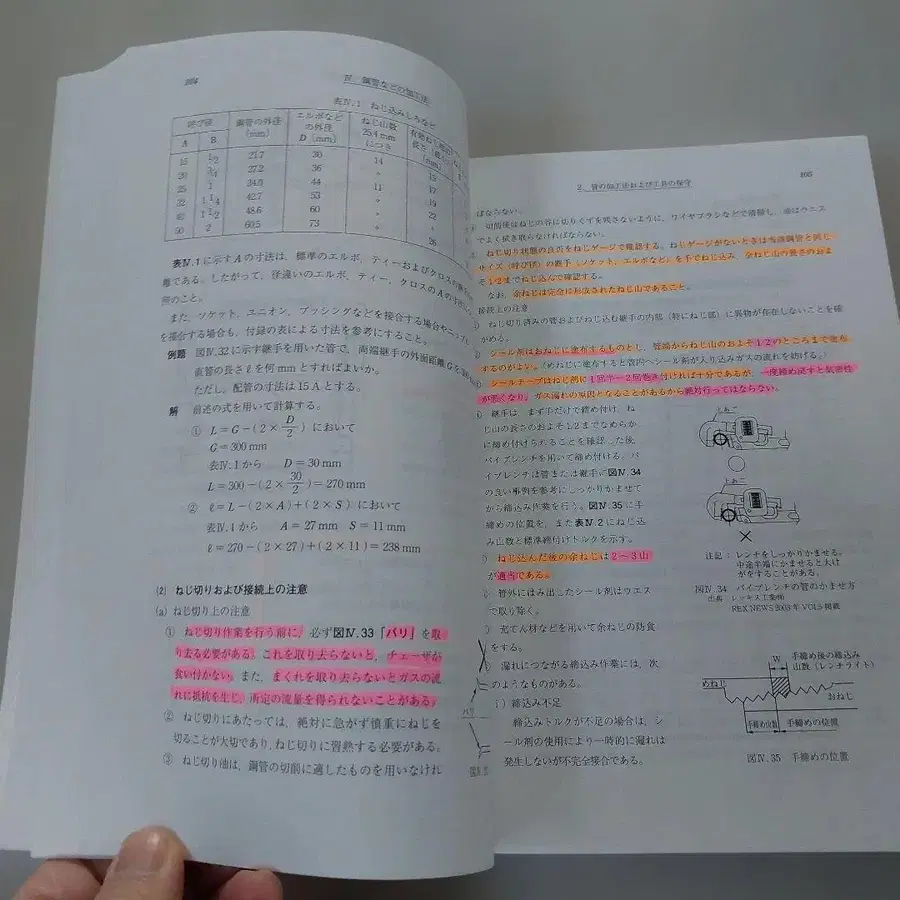 Ⅳ．鋼管などの加工法
表Ⅳ.1 ねじ込みしろなど
呼び径 鋼管の外径 (mm) エルボなどの外径 D (mm) ねじ山数 25.4mmにつき
A B
15 1/2 21.7 30 14 15
20 3/4 27.2 36 〃 17
25 1 34.0 44 11 19
32 1 1/4 42.7 53 〃 22
40 1 1/2 48.6 60 〃
50 2 60.5 73 〃 26
表Ⅳ.1に示すAの寸法は，標準のエルボ，ティーおよびクロスの
離である。したがって，径違いのエルボ，ティー，クロスのAの寸法
照のこと。
また，ソケット，ユニオン，ブッシングなどを接合する場合や
を接合する場合も，付録の表による寸法を参考にすること。
例題 図Ⅳ.32に示す継手を用いた管で，両端継手の外面距離Gを
直管の長さℓを何mmとすればよいか。
ただし，配管の寸法は15Aとする。
解 前述の式を用いて計算する。
① L=G−(2×D/2)において
G=300mm
表Ⅳ.1から D=30mm
L=300−(2×30/2)=270mm
② ℓ=L−(2×A)+(2×S)において
表Ⅳ.1から A=27mm S=11mm
ℓ=270−(2×27)+(2×11)=238mm
(2) ねじ切りおよび接続上の注意
(a) ねじ切り上の注意
① ねじ切り作業を行う前に，必ず図Ⅳ.33「バリ」を取
り去る必要がある。これを取り去らないと，チェーザが
食い付かない。また，まくれを取り去らないとガスの流
れに抵抗を生じ，所定の流量を得られないことがある。
② ねじ切りにあたっては，絶対に急がず慎重にねじを
切ることが大切であり，ねじ切りに習熟する必要がある。
③ ねじ切り油は，鋼管の切削に適したものを用いなけれ
バリ
2．管の加工法および工具の保守
105
ばならない。
切削後はねじの谷に切りくずを残さないように，ワイヤブラシなどで清掃し，油はウエス
でよく拭き取らなければならない。
ねじ切り状態の良否をねじゲージで確認する。ねじゲージがないときは当該鋼管と同じ
サイズ（呼び径）の継手（ソケット，エルボなど）を手でねじ込み，全ねじ山の長さのおよ
そ1/2までねじ込んで確認する。
なお，余ねじは完全に形成されたねじ山であること。
接続上の注意
ねじ切り済みの管およびねじ込む継手の内部（特にねじ部）に異物が存在しないことを確
かめる。
シール剤はおねじに塗布するものとし，管端からねじ山のおよそ1/2のところまで塗布
するのがよい。（めねじに塗布すると管内へシール剤が入り込みガスの流れを妨げる。）
シールテープはねじ部に1回半〜2回巻き付ければ十分であるが，一度締め戻すと気密性
が悪くなり，ガス漏れの原因となることがあるから絶対行ってはならない。
継手は，まず手だけで締め付け，ね
じ山の長さのおよそ1/2までなめらか
に締め付けられることを確認した後
パイプレンチを用いて締め付ける。パ
イプレンチは管または継手に図Ⅳ.34
の良い事例を参考にしっかりかませて
から締付け作業を行う。図Ⅳ.35に手
締めの位置を，また表Ⅳ.2にねじ込
み山数と標準締付けトルクを示す。
ねじ込んだ後の余ねじは2〜3山
が適当である。
管外にはみ出したシール剤はウエス
で取り除く。
充てん材などを用いて余ねじの防食
をする。
漏れにつながる締込み作業には，次
のようなものがある。
ⅰ）締込み不足
締込みトルクが不足の場合は，シ
ール剤の使用により一時的に漏れは
発生しないが不完全接合である。
上あご
○
上あご
×
注記：レンチをしっかりかませる。
中途半端にかませると大け
がをすることがある。
図Ⅳ.34 パイプレンチの管のかませ方
出典：レッキス工業㈱
REX NEWS 2003年 VOL.5 掲載
W
手締め後の締込み
山数（レンチライト）
めねじ
おねじ
手締め山数
手締めの位置
図Ⅳ.35 手締めの位置